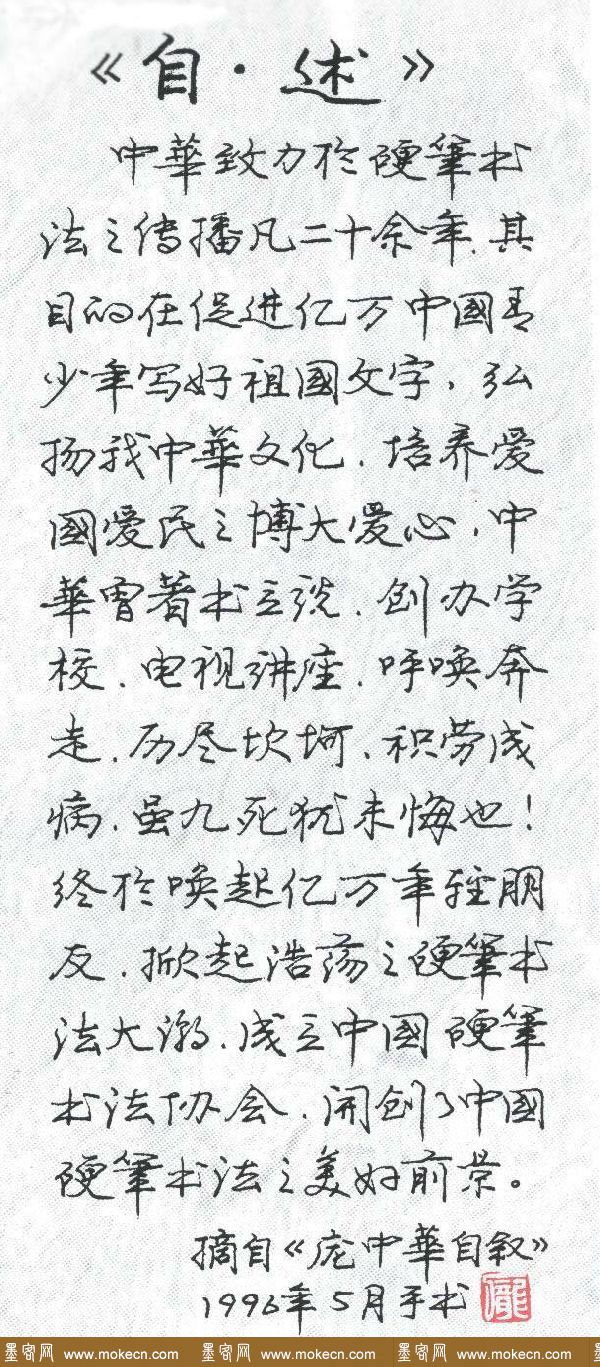 《自·述》
中華致力於硬筆书
法之传播凡二十余年.其
目的在促进亿万中國青
少年写好祖國文字,弘
扬我中華文化.培养爱
國爱民之博大爱心,中
華曾著书立说.创办学
校.电视讲座.呼唤奔
走.历尽坎坷.积劳成
病.虽九死犹未悔也!
终於唤起亿万年轻朋
友.掀起浩荡之硬筆书
法大潮.成立中國硬筆
书法协会.开创了中國
硬筆书法之美好前景。
摘自《庞中華自叙》
1996年5月手书
墨客网 www.mokecn.com 墨客网 www.mokecn.com 墨客网 www.mokecn.com 墨客网 www.mokecn.com